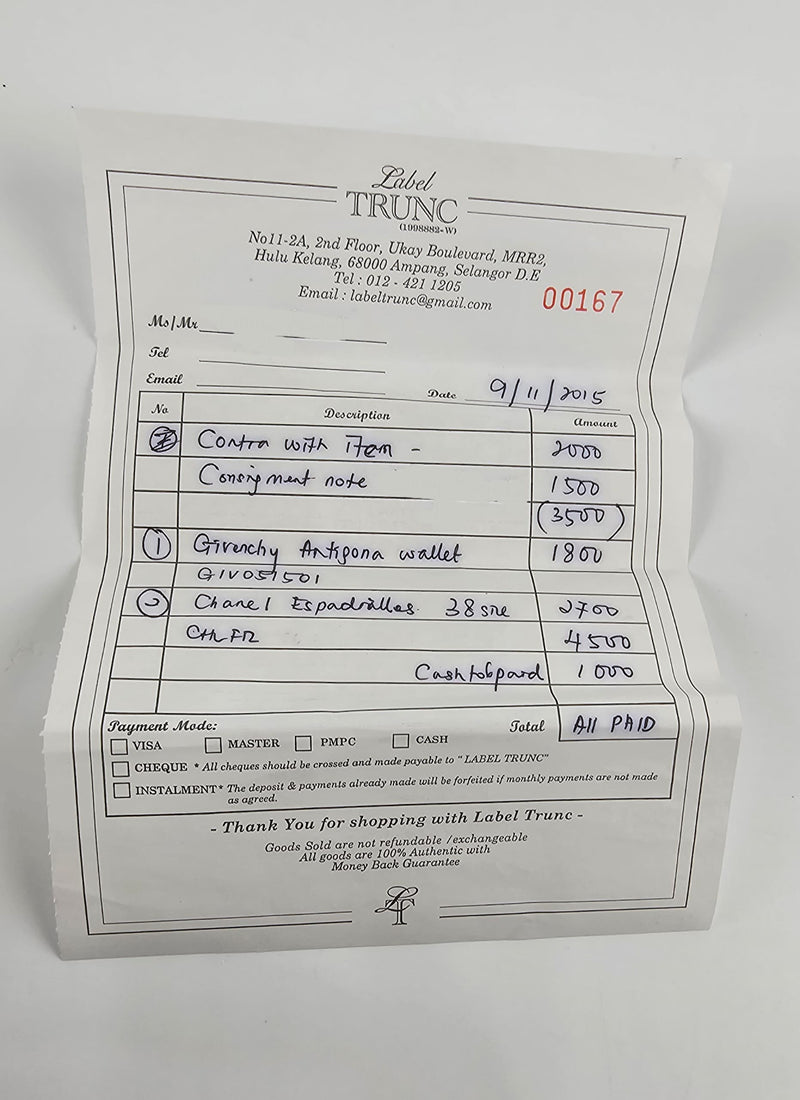 Label
TRUNC
(1098882-W)
No11-2A, 2nd Floor, Ukay Boulevard, MRR2,
Hulu Kelang, 68000 Ampang, Selangor D.E
Tel : 012 - 421 1205
Email : labeltrunc@gmail.com
00167
Ms/Mr
Tel
Email
Date 9/11/2015
No Description Amount
Contra with item - 2000
Consignment note 1500
(3500)
1 Givenchy Antigona wallet 1800
GIV051501
2 Chanel Espadrilles 38 size 2700
4500
1000
Payment Mode: Total All PAID
VISA MASTER PMPC CASH
CHEQUE * All cheques should be crossed and made payable to "LABEL TRUNC"
INSTALMENT* The deposit & payments already made will be forfeited if monthly payments are not made
as agreed.
- Thank You for shopping with Label Trunc -
Goods Sold are not refundable /exchangeable
All goods are 100% Authentic with
Money Back Guarantee
LT